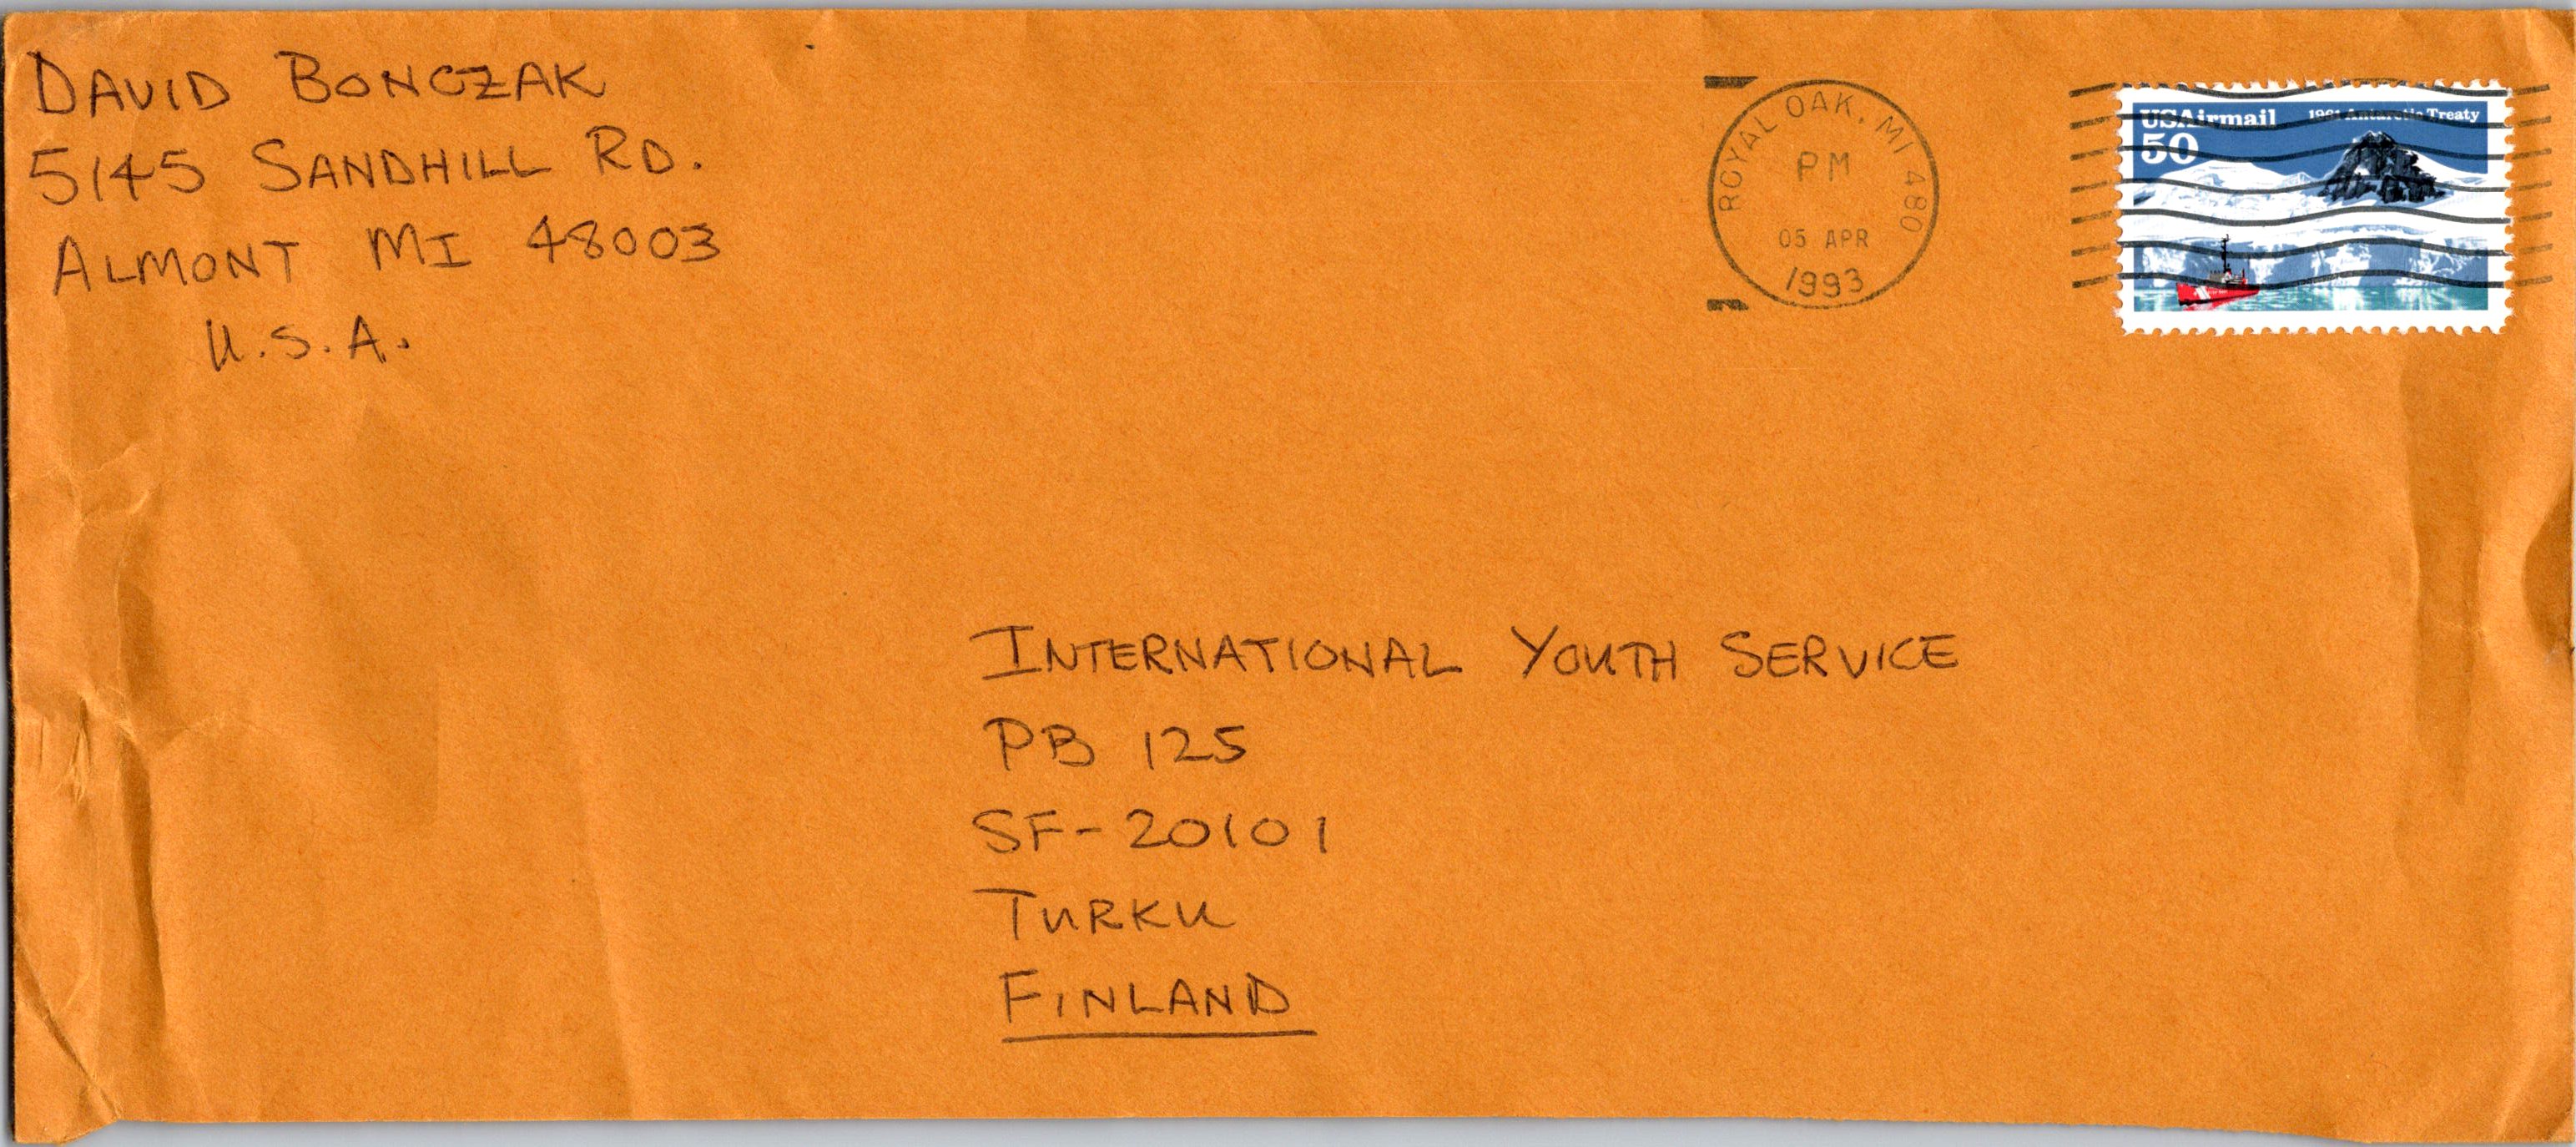 DAVID BONCZAK
5145 SANDHILL RD.
ALMONT MI 48003
U.S.A.
ROYAL OAK, MI 480
PM
05 APR
1993
USAirmail 1991 Antarctic Treaty
50
INTERNATIONAL YOUTH SERVICE
PB 125
SF-20101
TURKU
FINLAND